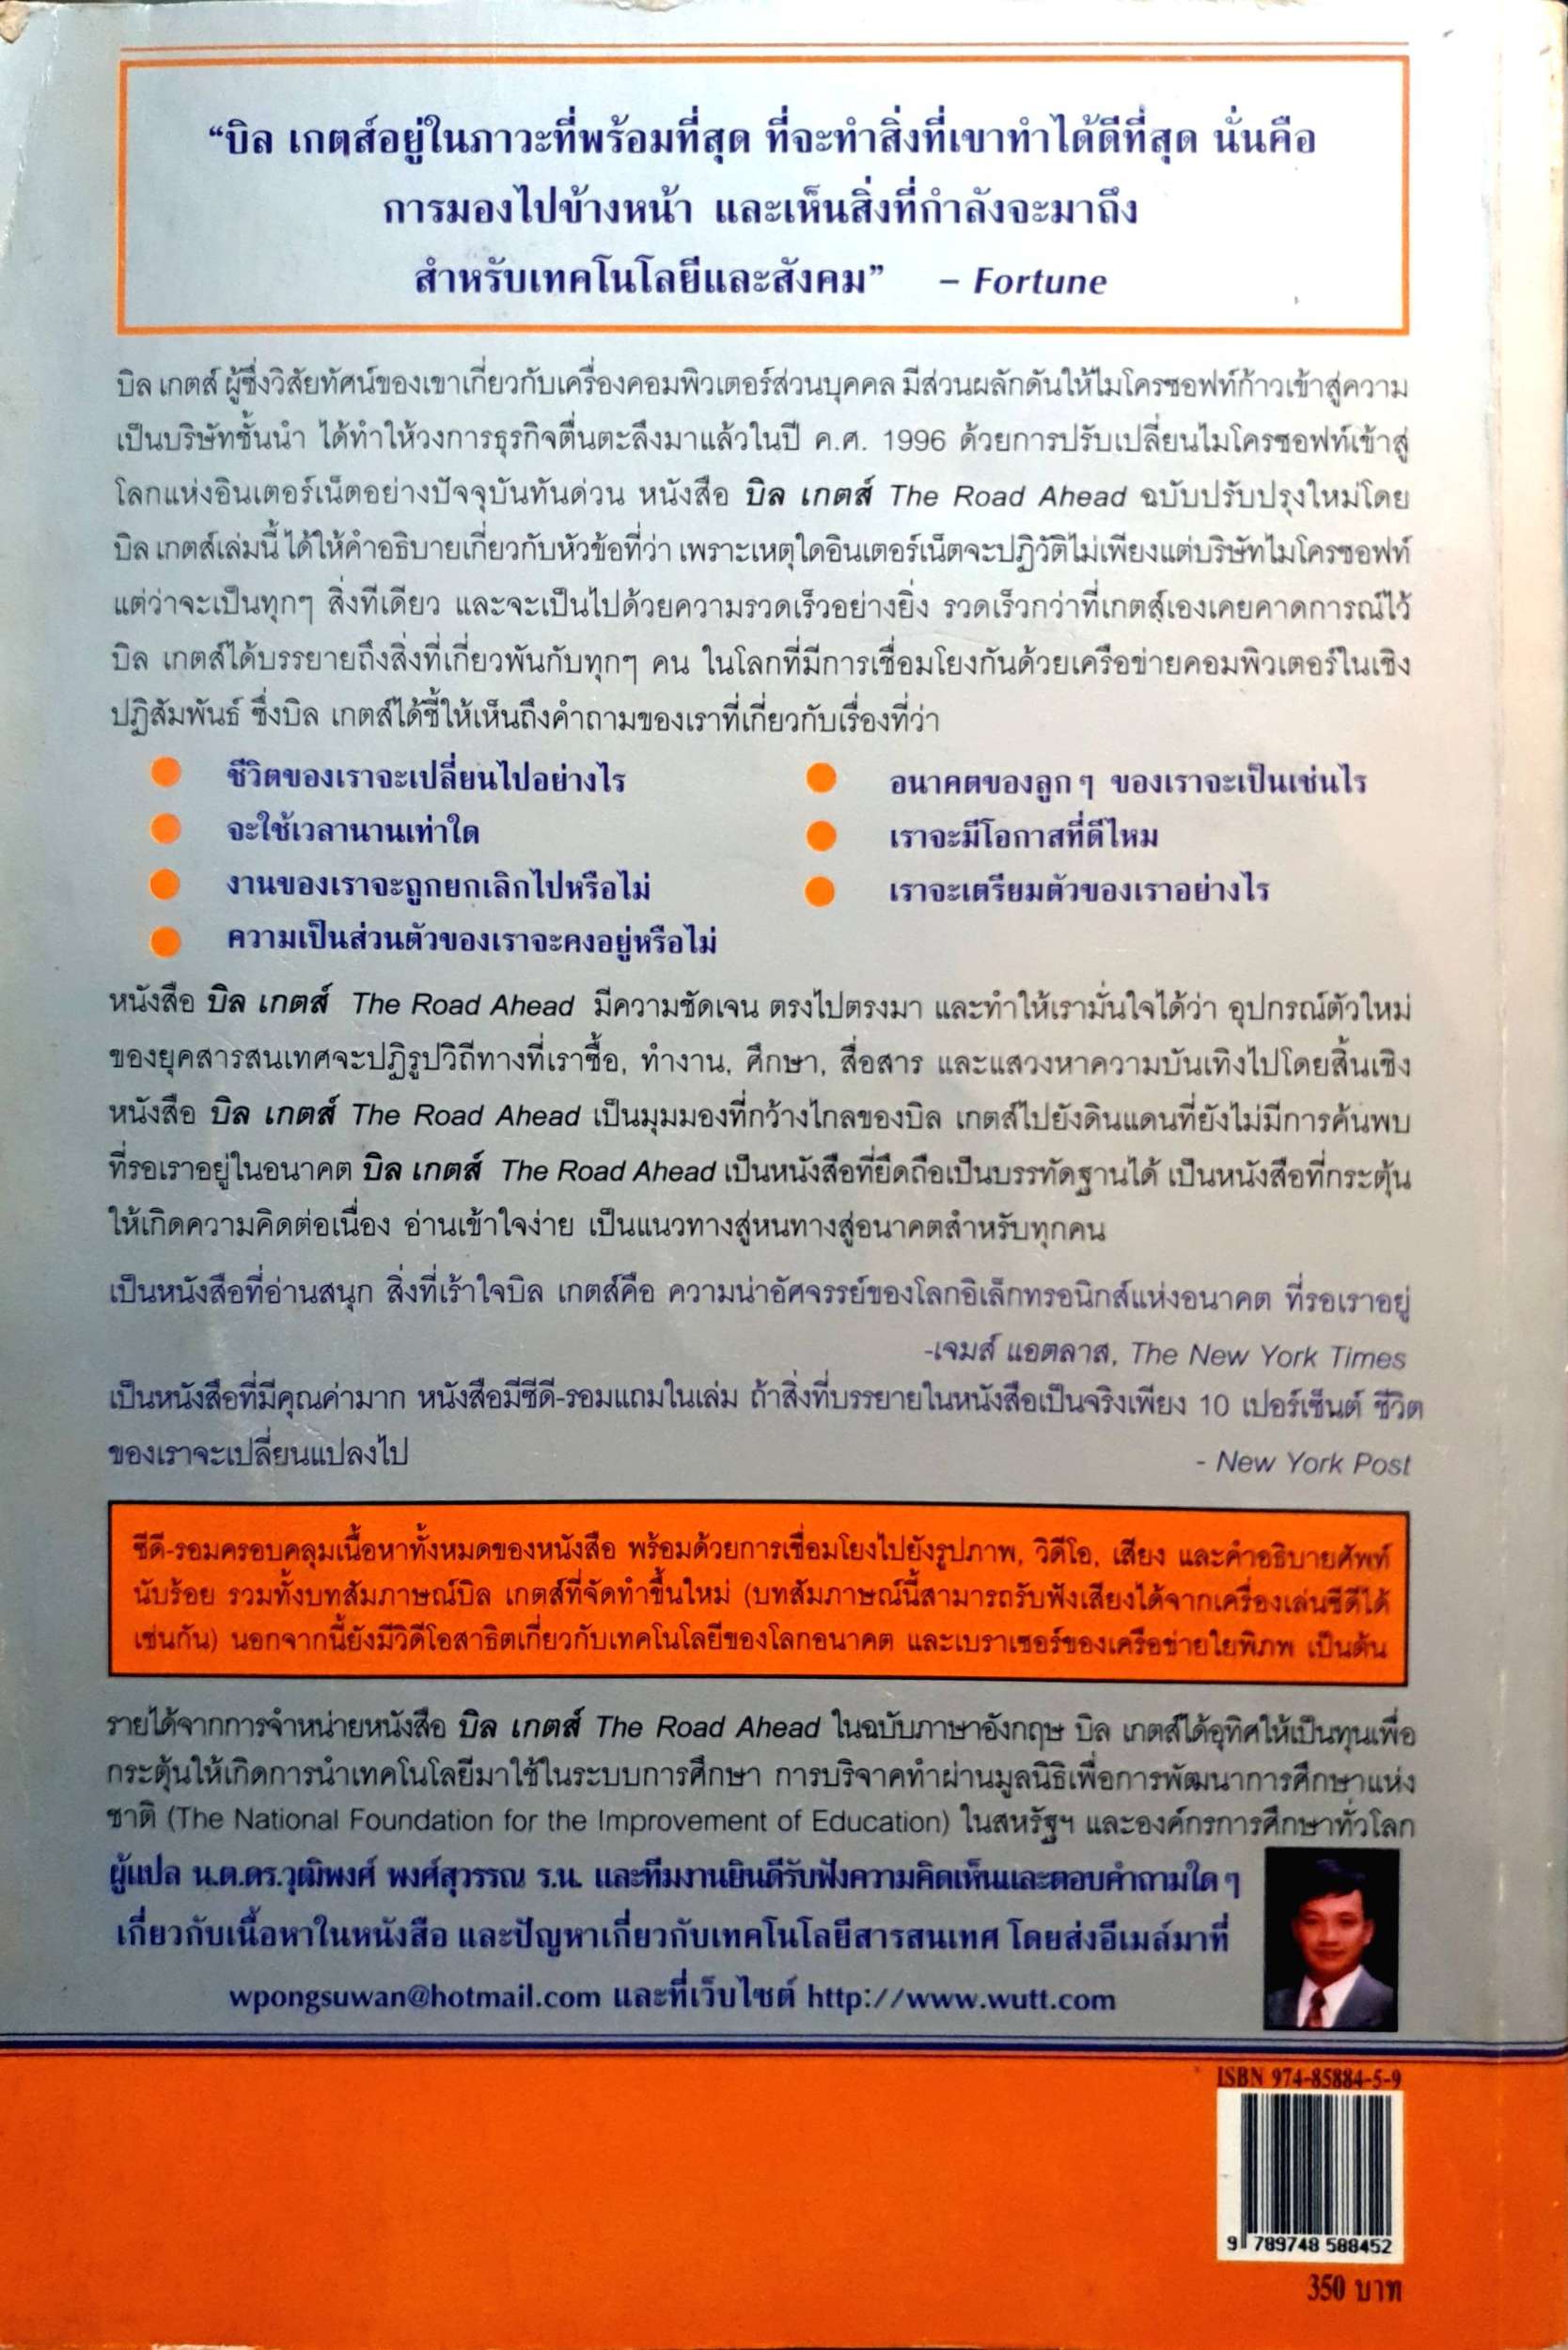 “บิล เกตส์อยู่ในภาวะที่พร้อมที่สุด ที่จะทำสิ่งที่เขาทำได้ดีที่สุด นั่นคือ
การมองไปข้างหน้า และเห็นสิ่งที่กำลังจะมาถึง
สำหรับเทคโนโลยีและสังคม” – Fortune
บิล เกตส์ ผู้ซึ่งวิสัยทัศน์ของเขาเกี่ยวกับเครื่องคอมพิวเตอร์ส่วนบุคคล มีส่วนผลักดันให้ไมโครซอฟท์ก้าวเข้าสู่ความ
เป็นบริษัทชั้นนำ ได้ทำให้วงการธุรกิจตื่นตะลึงมาแล้วในปี ค.ศ. 1996 ด้วยการปรับเปลี่ยนไมโครซอฟท์เข้าสู่
โลกแห่งอินเตอร์เน็ตอย่างปัจจุบันทันด่วน หนังสือ บิล เกตส์ The Road Ahead ฉบับปรับปรุงใหม่โดย
บิล เกตส์เล่มนี้ ได้ให้คำอธิบายเกี่ยวกับหัวข้อที่ว่า เพราะเหตุใดอินเตอร์เน็ตจะปฏิวัติไม่เพียงแต่บริษัทไมโครซอฟท์
แต่ว่าจะเป็นทุกๆ สิ่งทีเดียว และจะเป็นไปด้วยความรวดเร็วอย่างยิ่ง รวดเร็วกว่าที่เกตส์เองเคยคาดการณ์ไว้
บิล เกตส์ได้บรรยายถึงสิ่งที่เกี่ยวพันกับทุกๆ คน ในโลกที่มีการเชื่อมโยงกันด้วยเครือข่ายคอมพิวเตอร์ในเชิง
ปฏิสัมพันธ์ ซึ่งบิล เกตส์ได้ชี้ให้เห็นถึงคำถามของเราที่เกี่ยวกับเรื่องที่ว่า
ชีวิตของเราจะเปลี่ยนไปอย่างไร
จะใช้เวลานานเท่าใด
งานของเราจะถูกยกเลิกไปหรือไม่
ความเป็นส่วนตัวของเราจะคงอยู่หรือไม่
อนาคตของลูกๆ ของเราจะเป็นเช่นไร
เราจะมีโอกาสที่ดีไหม
เราจะเตรียมตัวของเราอย่างไร
หนังสือ บิล เกตส์ The Road Ahead มีความชัดเจน ตรงไปตรงมา และทำให้เรามั่นใจได้ว่า อุปกรณ์ตัวใหม่
ของยุคสารสนเทศจะปฏิรูปวิถีทางที่เราซื้อ, ทำงาน, ศึกษา, สื่อสาร และแสวงหาความบันเทิงไปโดยสิ้นเชิง
หนังสือ บิล เกตส์ The Road Ahead เป็นมุมมองที่กว้างไกลของบิล เกตส์ไปยังดินแดนที่ยังไม่มีการค้นพบ
ที่รอเราอยู่ในอนาคต บิล เกตส์ The Road Ahead เป็นหนังสือที่ยึดถือเป็นบรรทัดฐานได้ เป็นหนังสือที่กระตุ้น
ให้เกิดความคิดต่อเนื่อง อ่านเข้าใจง่าย เป็นแนวทางสู่หนทางสู่อนาคตสำหรับทุกคน
เป็นหนังสือที่อ่านสนุก สิ่งที่เร้าใจบิล เกตส์คือ ความน่าอัศจรรย์ของโลกอิเล็กทรอนิกส์แห่งอนาคต ที่รอเราอยู่
-เจมส์ แอตลาส, The New York Times
เป็นหนังสือที่มีคุณค่ามาก หนังสือมีซีดี-รอมแถมในเล่ม ถ้าสิ่งที่บรรยายในหนังสือเป็นจริงเพียง 10 เปอร์เซ็นต์ ชีวิต
ของเราจะเปลี่ยนแปลงไป - New York Post
ซีดี-รอมครอบคลุมเนื้อหาทั้งหมดของหนังสือ พร้อมด้วยการเชื่อมโยงไปยังรูปภาพ, วิดีโอ, เสียง และคำอธิบายศัพท์
นับร้อย รวมทั้งบทสัมภาษณ์บิล เกตส์ที่จัดทำขึ้นใหม่ (บทสัมภาษณ์นี้สามารถรับฟังเสียงได้จากเครื่องเล่นซีดีได้
เช่นกัน) นอกจากนี้ยังมีวิดีโอสาธิตเกี่ยวกับเทคโนโลยีของโลกอนาคต และเบราเซอร์ของเครือข่ายใยพิภพ เป็นต้น
รายได้จากการจำหน่ายหนังสือ บิล เกตส์ The Road Ahead ในฉบับภาษาอังกฤษ บิล เกตส์ได้อุทิศให้เป็นทุนเพื่อ
กระตุ้นให้เกิดการนำเทคโนโลยีมาใช้ในระบบการศึกษา การบริจาคทำผ่านมูลนิธิเพื่อการพัฒนาการศึกษาแห่ง
ชาติ (The National Foundation for the Improvement of Education) ในสหรัฐฯ และองค์กรการศึกษาทั่วโลก
ผู้แปล น.ต.ดร.วุฒิพงศ์ พงศ์สุวรรณ ร.น. และทีมงานยินดีรับฟังความคิดเห็นและตอบคำถามใดๆ
เกี่ยวกับเนื้อหาในหนังสือ และปัญหาเกี่ยวกับเทคโนโลยีสารสนเทศ โดยส่งอีเมล์มาที่
wpongsuwan@hotmail.com และที่เว็บไซต์ http://www.wutt.com
ISBN 974-85884-5-9
9 789748 588452
350 บาท